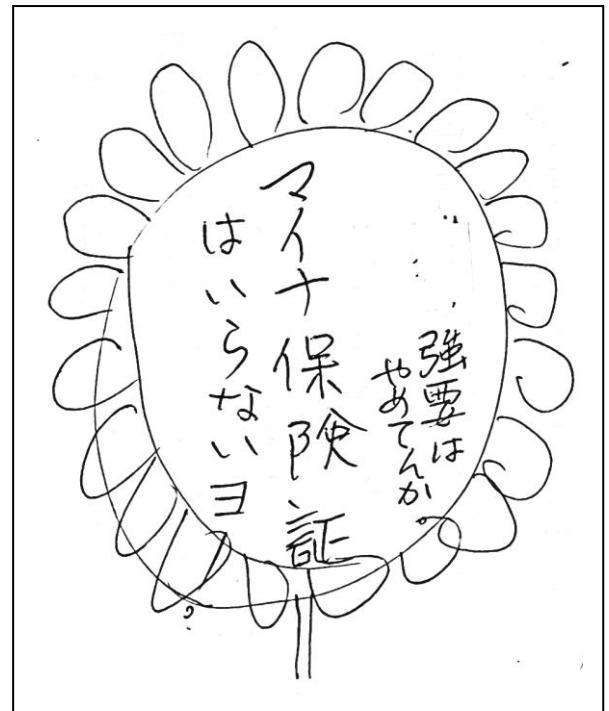 強要は
やめてんか。
マイナ保険証
はいらないヨ